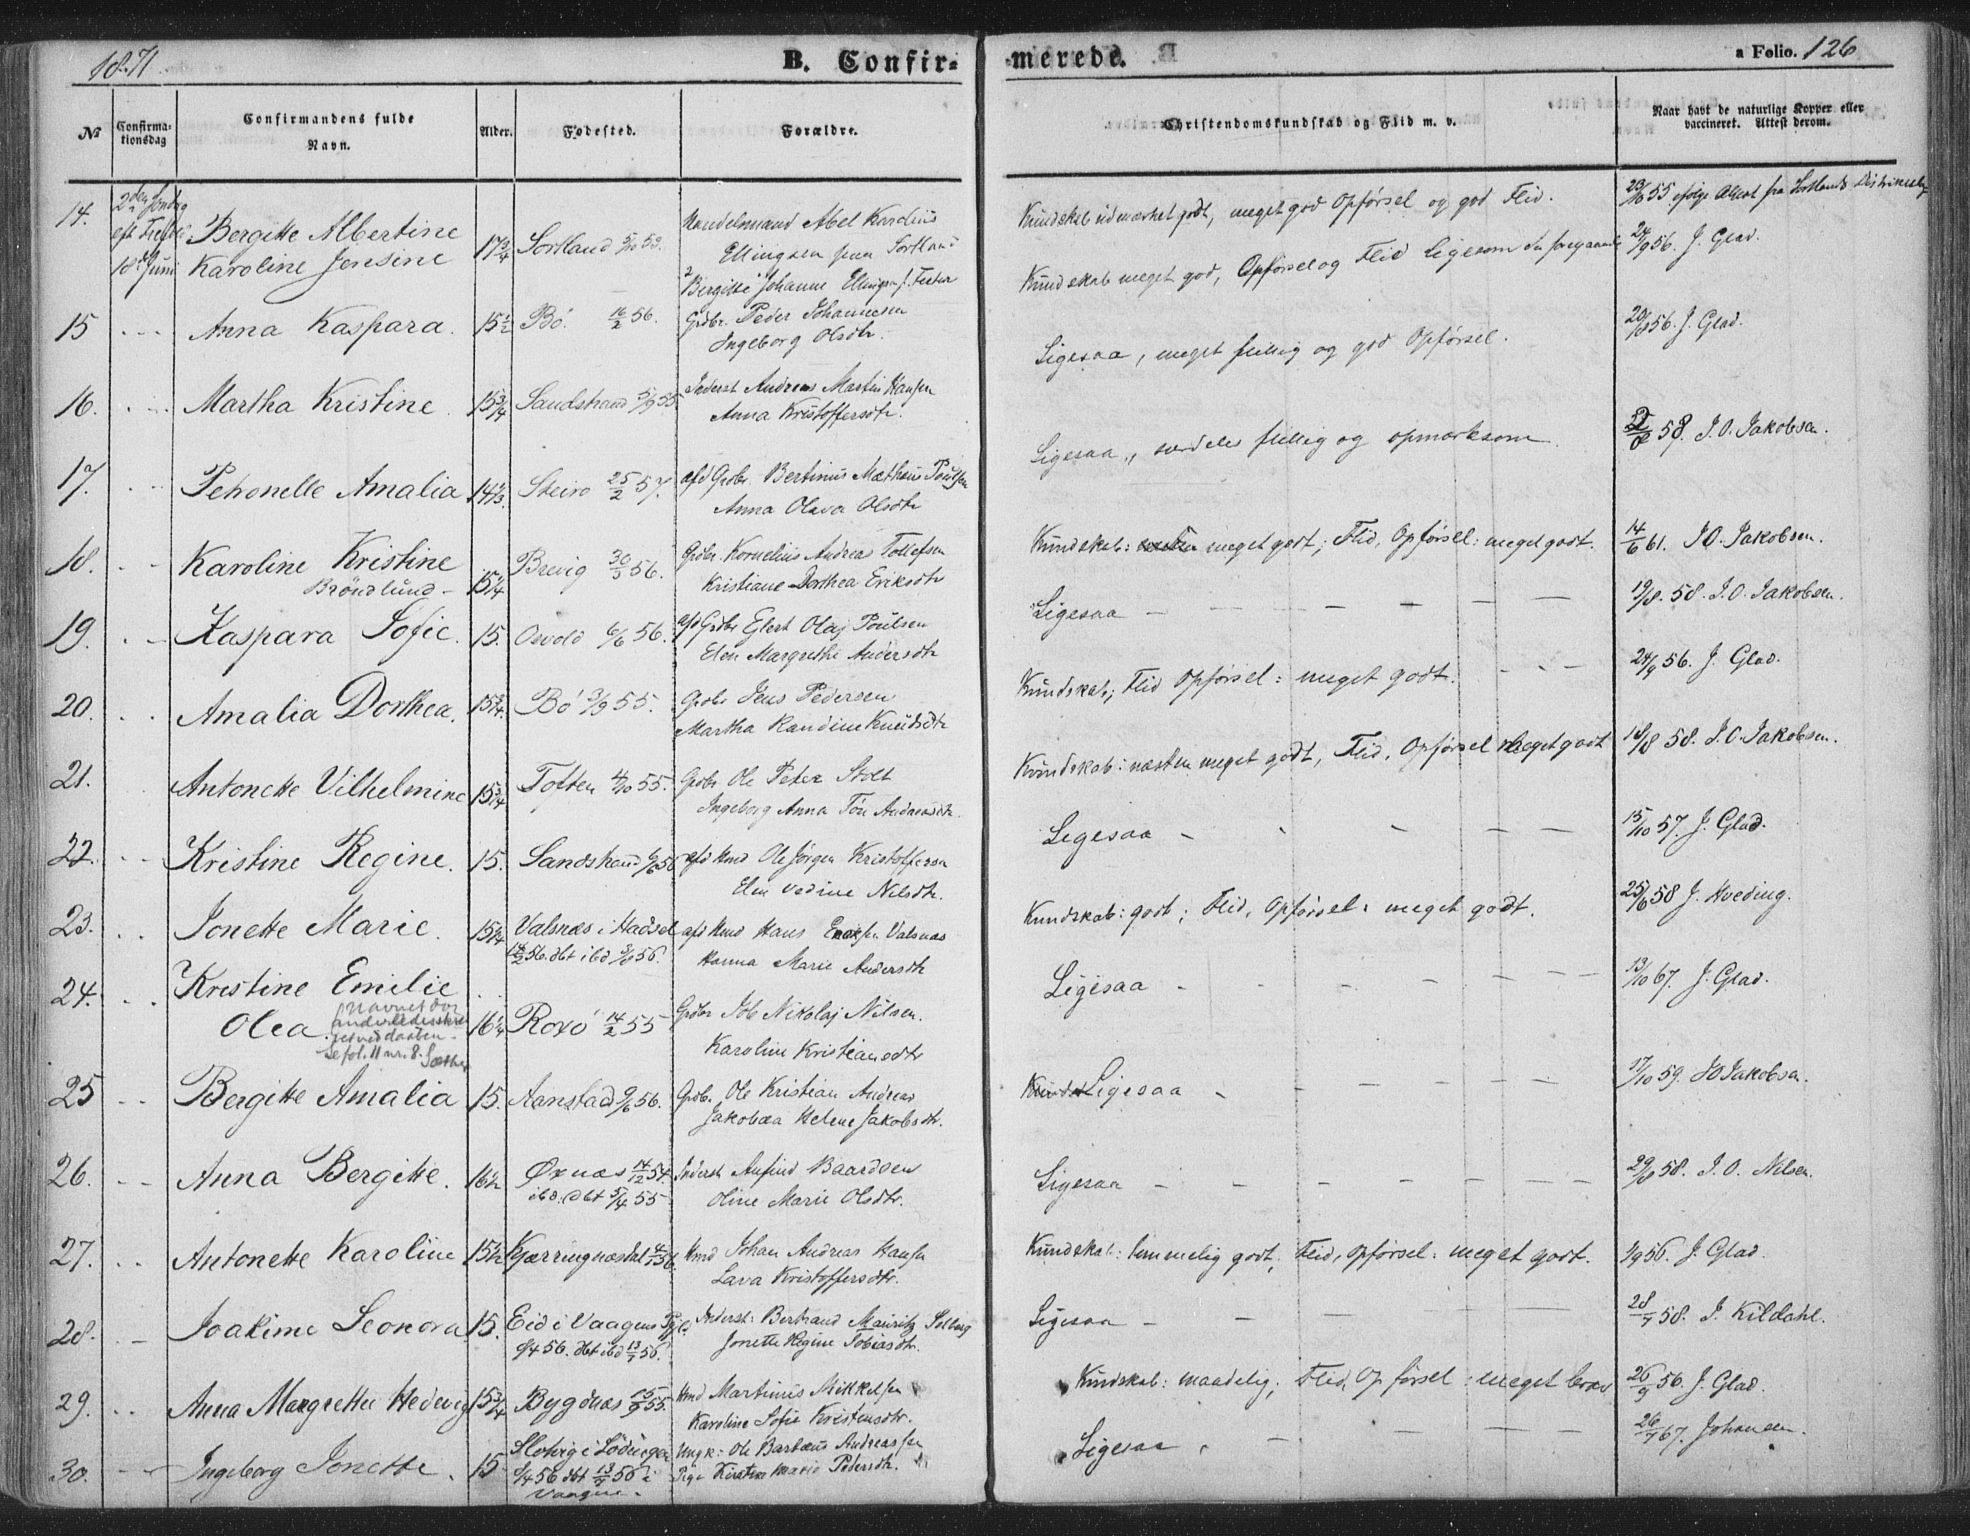 1871
B. Confir-
merede.
a Folio. 126
No
Confirma-
tionsdag
Confirmandens fulde
Navn.
Alder.
Fødested.
Forældre.
Christendomskundskab og Flid m. v.
Naar havt de naturlige Kopper eller
vaccineret. Attest derom.
14. 2den Søndag
eft Trefold.
18de Juni
Bergitte Albertine
Karoline Jensine
17 3/4 Sortland 5/10 53.
Handelsmand Abel Kardius
Ellingsen paa Sortland
Bergitte Johanne Ellingsen f. Fester
Kundskab udmærket godt, meget god Opførsel og god Flid.
23/8 55 ifølge Attest fra Sortlands Distriktslæge
15 Anna Kaspara. 15 1/2 Bö 16/2 56.
Grdbr. Peder Johannesen
Ingeborg Olsdtr.
Kundskab meget god, Opførsel og Flid ligesom den foregaaende
24/9 56. J. Glad.
16. Martha Kristine. 15 3/4 Sandstrand 5/9 55.
Inderst Andreas Martin Hansen
Anna Kristoffersdtr.
Ligesaa, meget flittig og god Opførsel.
20/8 56. J. Glad.
17. Petronelle Amalia 14 1/3. Steiro 25/2 57.
afd Grdbr. Bertinus Mathæus Poulsen
Anna Olava Olsdtr
Ligesaa, særdeles flittig og opmærksom.
58. J. O. Jakobsen.
18. Karoline Kristine
Bröndlund - 15 1/4
Brevig 30/3 56.
Grdbr. Kornelius Andreas Tollefsen
Kristiane Dorthea Eriksdtr
Kundskab: meget godt; Flid, Opførsel: meget godt.
14/6 61. J. O. Jakobsen.
19. Kaspara Sofie. 15. Osvold 6/6 56.
afd Grdbr Ejlert Olaj Poulsen
Elen Margrethe Andersdtr
Ligesaa
19/8. 58. J. O. Jakobsen.
20. Amalia Dorthea. 15 3/4. Bö 3/9 55.
Grdbr Jens Pedersen
Martha Randine Knudsdtr
Kundskab; Flid Opførsel: meget godt.
24/9 56. J. Glad.
21. Antonette Vilhelmine 15 3/4 Toften 4/10 55.
Grdbr. Ole Peter Stolt
Ingeborg Anna Tön Andreasdtr.
Kundskab: næsten meget godt, Flid, Opførsel meget godt
18/8 58. J. O. Jakobsen.
22. Kristine Regine. 15. Sandstrand 6/6 56
afd Hmd Ole Jørgen Kristoffersen
Elen Vedine Nilsdtr.
Ligesaa
15/10 57. J. Glad.
23. Jonette Marie. 15 1/4
Valsnæs i Hadsel
14/2 56. dbt ibd 3/8 56.
afd Hmd Hans Eriksen Valsnæs
Hanna Marie Andersdtr
Kundskab: godt; Flid, Opførsel: meget godt.
25/6 58 J. Hveding.
24. Kristine Emilie
Olea.
(Navnet var
anderledes skre-
vet ved daaben.
Se fol. 11 nr. 8. Sæther
16 1/4 Roxö 14/2 55
Grdbr Job Nikolaj Nilsen.
Karoline Kristiansdtr
Ligesaa
13/10 67. J. Glad.
25 Bergitte Amalia 15. Aanstad 9/6 56.
Grdbr. Ole Kristian Andreas
Jakobæa Helene Jakobsdtr.
Kunds Ligesaa
17/10 59. J O Jakobsen.
26. Anna Bergitte. 16 1/2
Øxnæs 14/12 54.
ibd. dbt 5/4 55
Inderst Anfind Baardsen
Oline Marie Olsdtr.
Ligesaa
29/8 58. J. O. Nilsen.
27. Antonette Karoline 15 1/2 Kjerringnæsdal 56.
Hmd Johan Andreas Hansen
Lava Kristoffersdtr.
Kundskab: temmelig godt, Flid, Opførsel: meget godt.
1/9 56. J. Glad.
28. Joakime Leonora 15.
Eid i Vaagens Pgjl.
8/4 56. dbt ibd 13/7 56.
Inderst: Bertrand Mauritz Solberg
Jonette Regine Tobiasdtr.
Ligesaa
28/7 58. J. Kildahl.
29. Anna Margrethe Hedevig 15 3/4 Bygdnæs 15/9 55.
Hmd Martinus Mikkelsen
Karoline Sofie Kristensdtr.
Kundskab: maadelig; Flid, Opførsel: meget bra
26/9 56. J. Glad.
30. Ingeborg Jonette. 15
Slotvig i Lödingen
8/4 56 dbt 13/7 56 i
Vaagen.
Ungk: Ole Bartæus Andreassen
Pige Kirstine Marie Pedersdtr.
Ligesaa
26/7 67. Johansen.